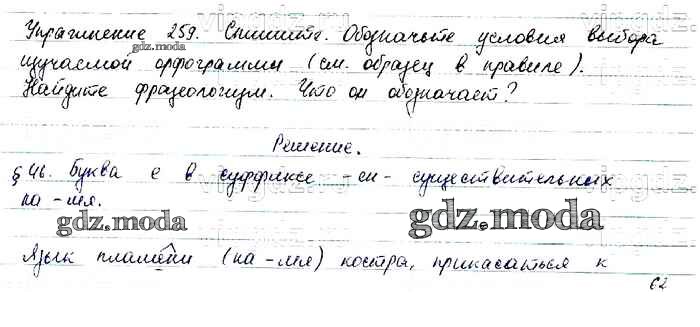 Упражнение 259. Спишите. Обозначьте условия выбора
изучаемой орфограммы (см. образец в правиле).
Найдите фразеологизм. Что он обозначает?
gdz.moda
Решение.
§ 46. Буква е в суффиксе -ен- существительных
на -мя.
gdz.moda
gdz.moda
Язык пламени (на -мя) костра, прикасаться к
62